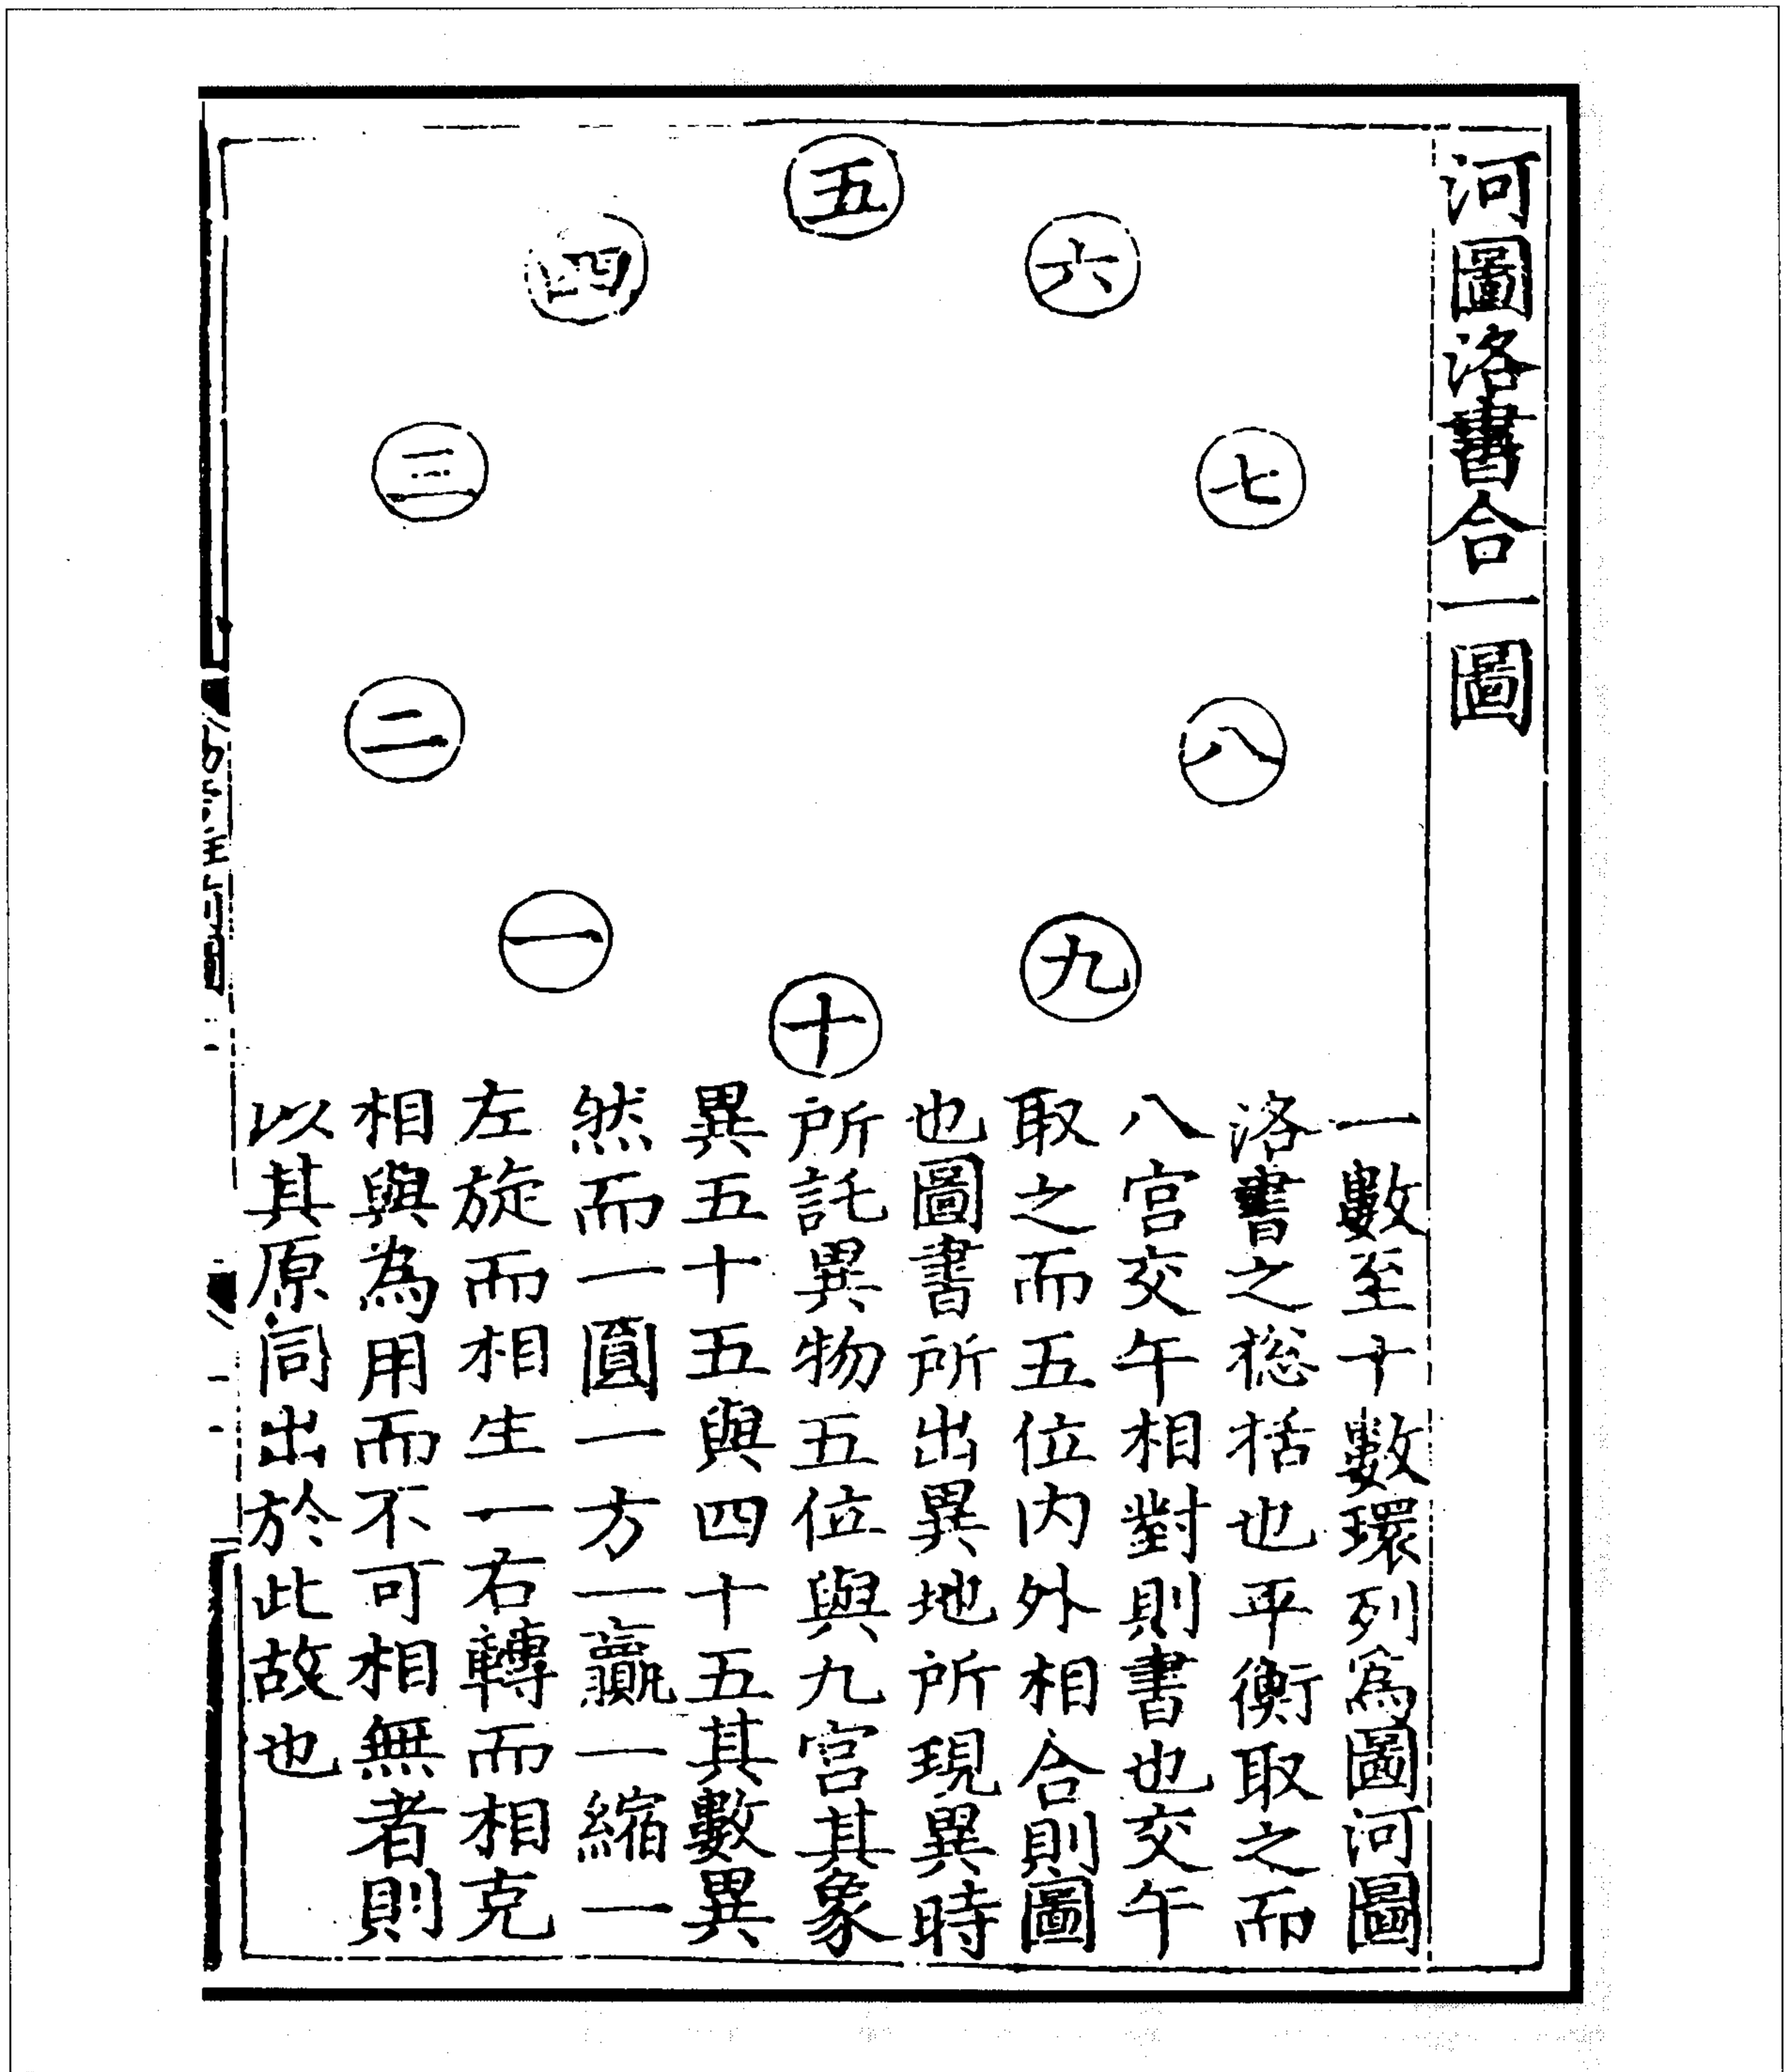 河圖洛書合一圖
五
六
四
七
三
八
二
九
一
十
一數至十數環列為圖河圖
洛書之総括也平衡取之而
八宮交午相對則書也交午
取之而五位内外相合則圖
也圖書所出異地所現異時
所託異物五位與九宮其象
異五十五與四十五其數異
然而一圓一方一贏一縮一
左旋而相生一右轉而相克
相與為用而不可相無者則
以其原同出於此故也